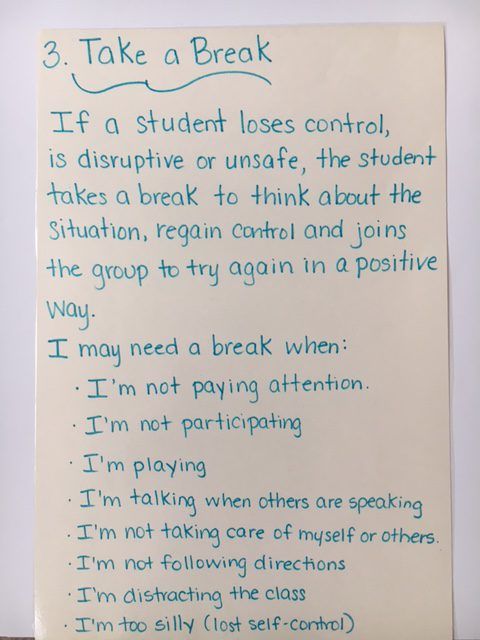 3. Take a Break
If a student loses control,
is disruptive or unsafe, the student
takes a break to think about the
situation, regain control and joins
the group to try again in a positive
way.
I may need a break when:
· I'm not paying attention.
· I'm not participating
· I'm playing
· I'm talking when others are speaking
· I'm not taking care of myself or others.
· I'm not following directions
· I'm distracting the class
· I'm too silly (lost self-control)